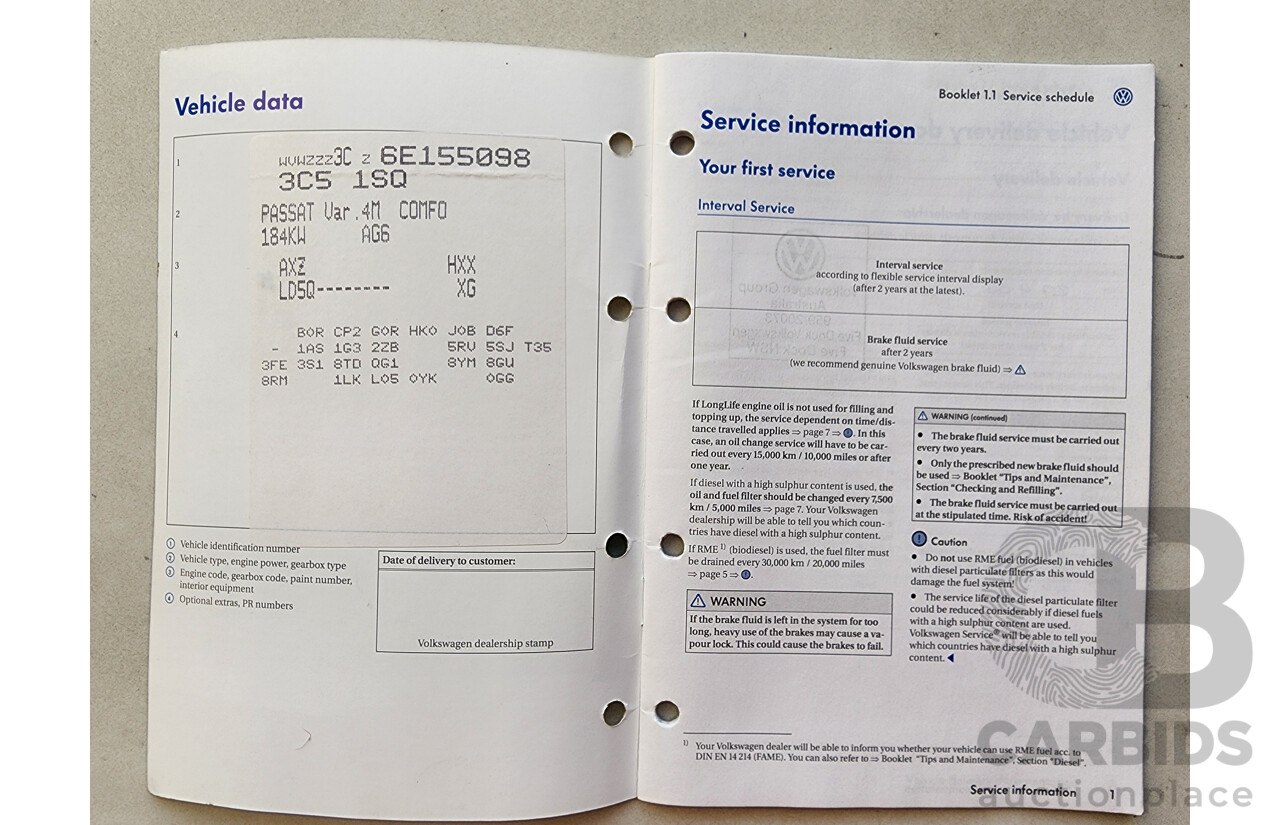 Vehicle data
1
WVWZZZ3C Z 6E155098
3C5 1SQ
2
PASSAT Var.4M COMFO
184KW AG6
3
AXZ HXX
LD5Q-------- XG
4
BOR CP2 GOR HKO JOB D6F
- 1AS 1G3 2ZB 5RU 5SJ T35
3FE 3S1 8TD QG1 8YM 8GU
8RM 1LK L05 0YK 0GG
① Vehicle identification number
② Vehicle type, engine power, gearbox type
③ Engine code, gearbox code, paint number,
interior equipment
④ Optional extras, PR numbers
Date of delivery to customer:
Volkswagen dealership stamp
Booklet 1.1 Service schedule
Service information
Your first service
Interval Service
Interval service
according to flexible service interval display
(after 2 years at the latest).
Brake fluid service
after 2 years
(we recommend genuine Volkswagen brake fluid) ⇒ ⚠
If LongLife engine oil is not used for filling and
topping up, the service dependent on time/dis-
tance travelled applies ⇒ page 7 ⇒ ⓘ. In this
case, an oil change service will have to be car-
ried out every 15,000 km / 10,000 miles or after
one year.
If diesel with a high sulphur content is used, the
oil and fuel filter should be changed every 7,500
km / 5,000 miles ⇒ page 7. Your Volkswagen
dealership will be able to tell you which coun-
tries have diesel with a high sulphur content.
If RME 1) (biodiesel) is used, the fuel filter must
be drained every 30,000 km / 20,000 miles
⇒ page 5 ⇒ ⓘ.
WARNING
If the brake fluid is left in the system for too
long, heavy use of the brakes may cause a va-
pour lock. This could cause the brakes to fail.
WARNING (continued)
• The brake fluid service must be carried out
every two years.
• Only the prescribed new brake fluid should
be used ⇒ Booklet "Tips and Maintenance",
Section "Checking and Refilling".
• The brake fluid service must be carried out
at the stipulated time. Risk of accident!
Caution
• Do not use RME fuel (biodiesel) in vehicles
with diesel particulate filters as this would
damage the fuel system!
• The service life of the diesel particulate filter
could be reduced considerably if diesel fuels
with a high sulphur content are used.
Volkswagen Service® will be able to tell you
which countries have diesel with a high sulphur
content. ◀
1) Your Volkswagen dealer will be able to inform you whether your vehicle can use RME fuel acc. to
DIN EN 14 214 (FAME). You can also refer to ⇒ Booklet "Tips and Maintenance", Section "Diesel".
Service information 1
CARBIDS
auctionplace